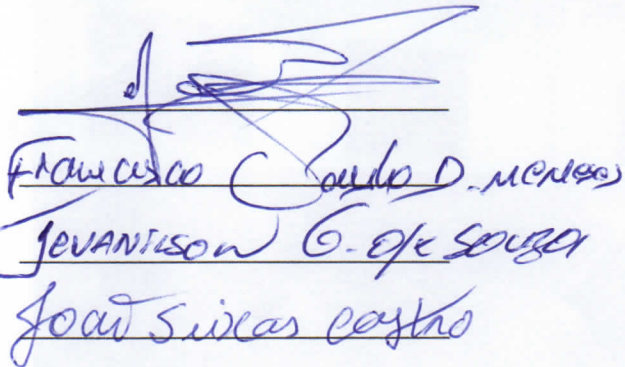 Francisco Paulo D. Meneses
Jevanilson G. de Souza
João Seixas Castro